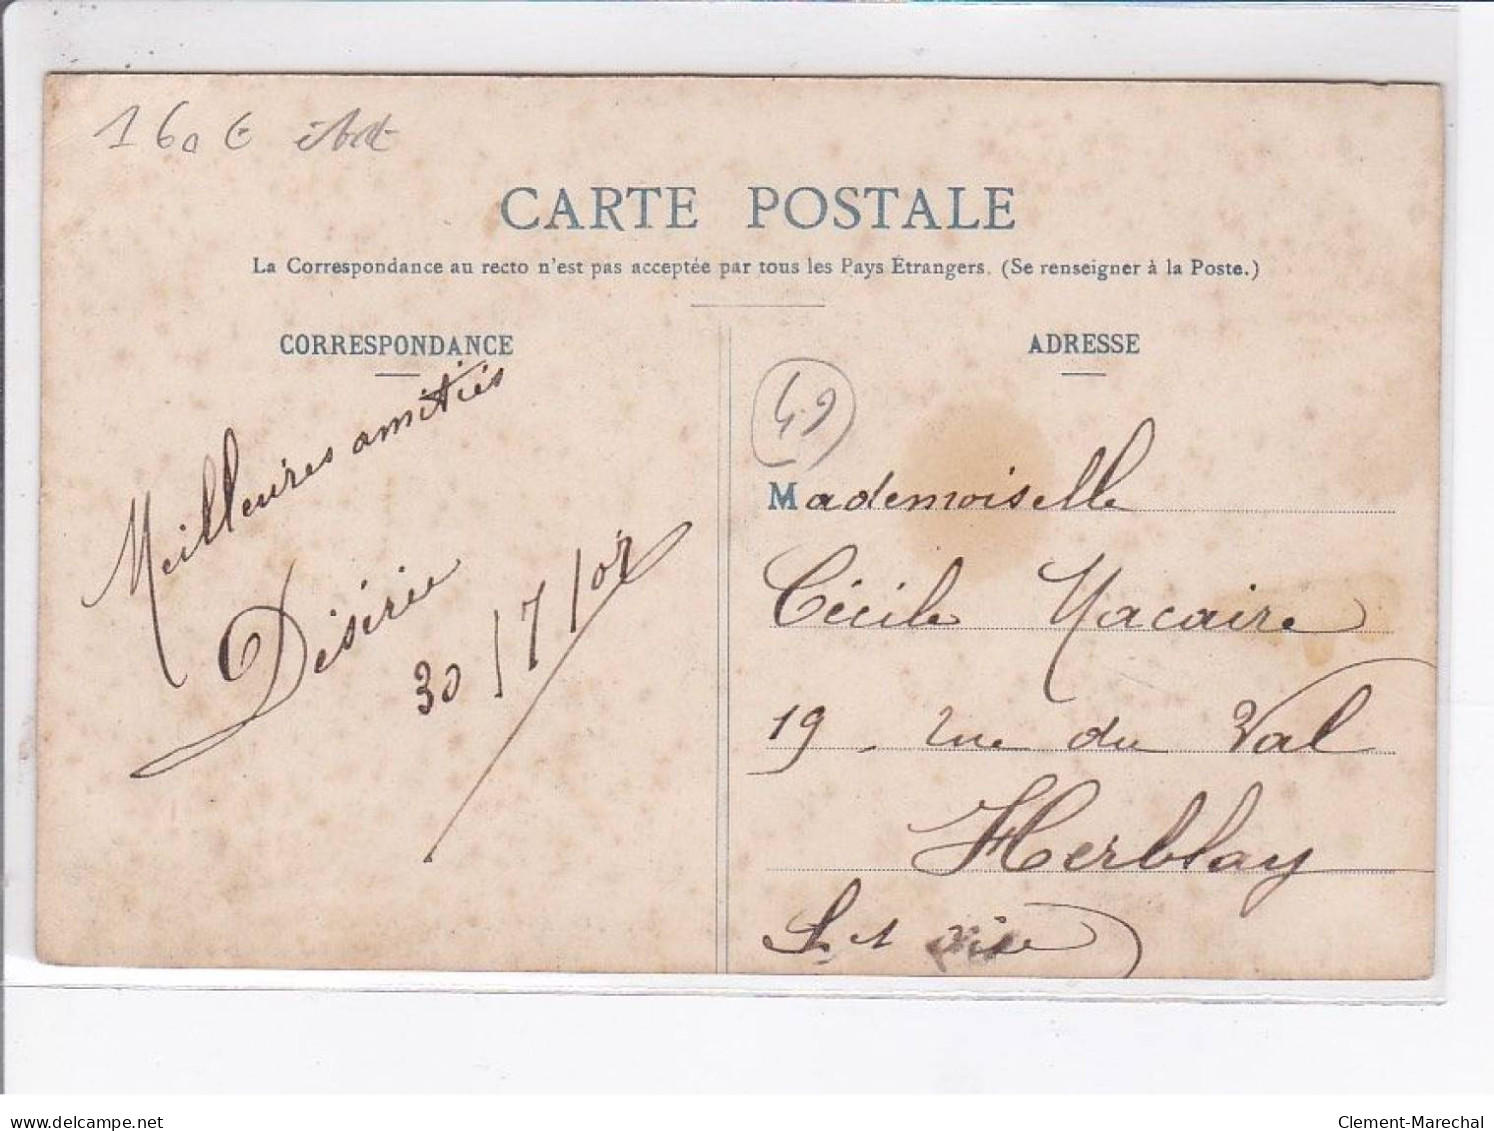 160 €
CARTE POSTALE
La Correspondance au recto n'est pas acceptée par tous les Pays Étrangers. (Se renseigner à la Poste.)
CORRESPONDANCE
Meilleures amitiés
Désirée
30/7/07
ADRESSE
49
Mademoiselle
Cécile Macaire
19, rue du Val
Herblay
S. et Oise
delcampe.net
Clement-Marechal